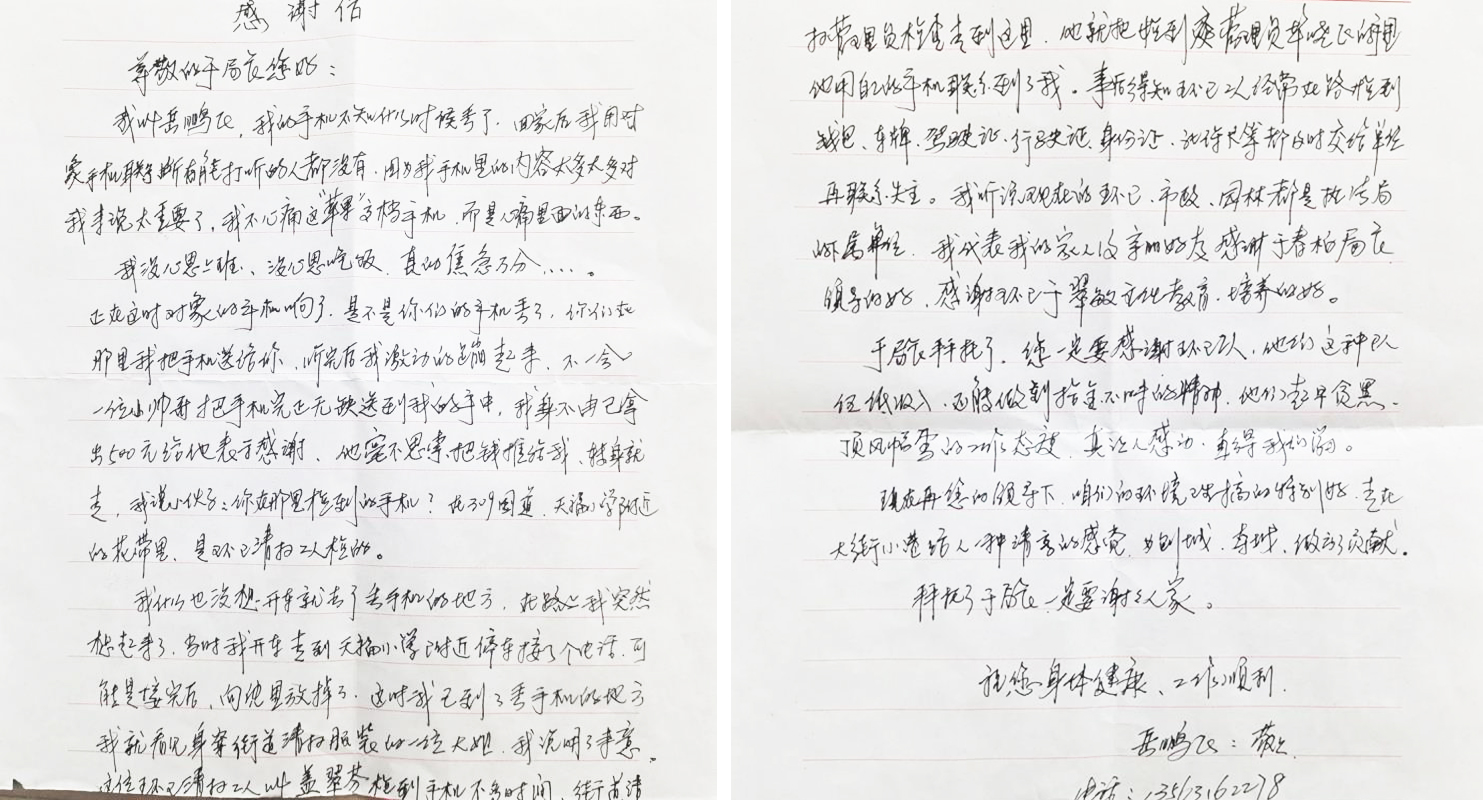 感谢信
尊敬的于局长您好：
我叫岳鹏飞，我的手机不知什么时候丢了，回家后我用对
象手机联系所有能打听的人都没有，因为我手机里的内容太多太多对
我来说太重要了，我不心痛这“苹果”高档手机，而是心痛里面的东西。
我没心思上班、没心思吃饭，真的焦急万分……。
正在这时对象的手机响了，是不是你们的手机丢了，你们在
那里我把手机送给你，听完后我激动的蹦起来，不一会
一位小帅哥把手机完正无缺送到我的手中，我身不由己拿
出500元给他表于感谢、他毫不思索把钱推给我、转身就
走，我说小伙子：你在那里捡到的手机？在309国道，天福小学附近
的花带里，是环卫清扫工人捡的。
我什么也没想开车就去了丢手机的地方，在路上我突然
想起来了，当时我开车走到天福小学附近停车接了个电话，可
能是接完后，向包里放掉了，这时我已到了丢手机的地方
我就看见身穿街道清扫服装的一位大姐，我说明了来意。
这位环卫清扫工人叫盖翠芬捡到手机不多时间，街道清
扫管理员检查走到这里，他就把捡到交管理员毕晓飞的手里
他用自己的手机联系到了我。事后得知环卫工人经常在路捡到
钱包、车牌、驾驶证、行驶证、身份证、记作卡等都及时交给单位
再联系失主。我听说现在的环卫、市政、园林都是执法局
的属单位，我代表我的家人及亲朋好友感谢于春柏局长
领导的好，感谢环卫于翠敏主任教育、培养的好。
于局长拜托了，您一定要感谢环卫工人，他们这种以
但低收入，还能做到拾金不昧的精神，他们起早贪黑、
顶风冒雪的工作态度，真让人感动，真得我们学习。
现在再您的领导下，咱们的环境卫生搞的特别好，走在
大街小巷给人一种清亮的感觉，为创城、卫城，做出了贡献。
拜托了于局长一定要谢谢人家。
祝您身体健康、工作顺利．
岳鹏飞：敬上
电话：13563162278